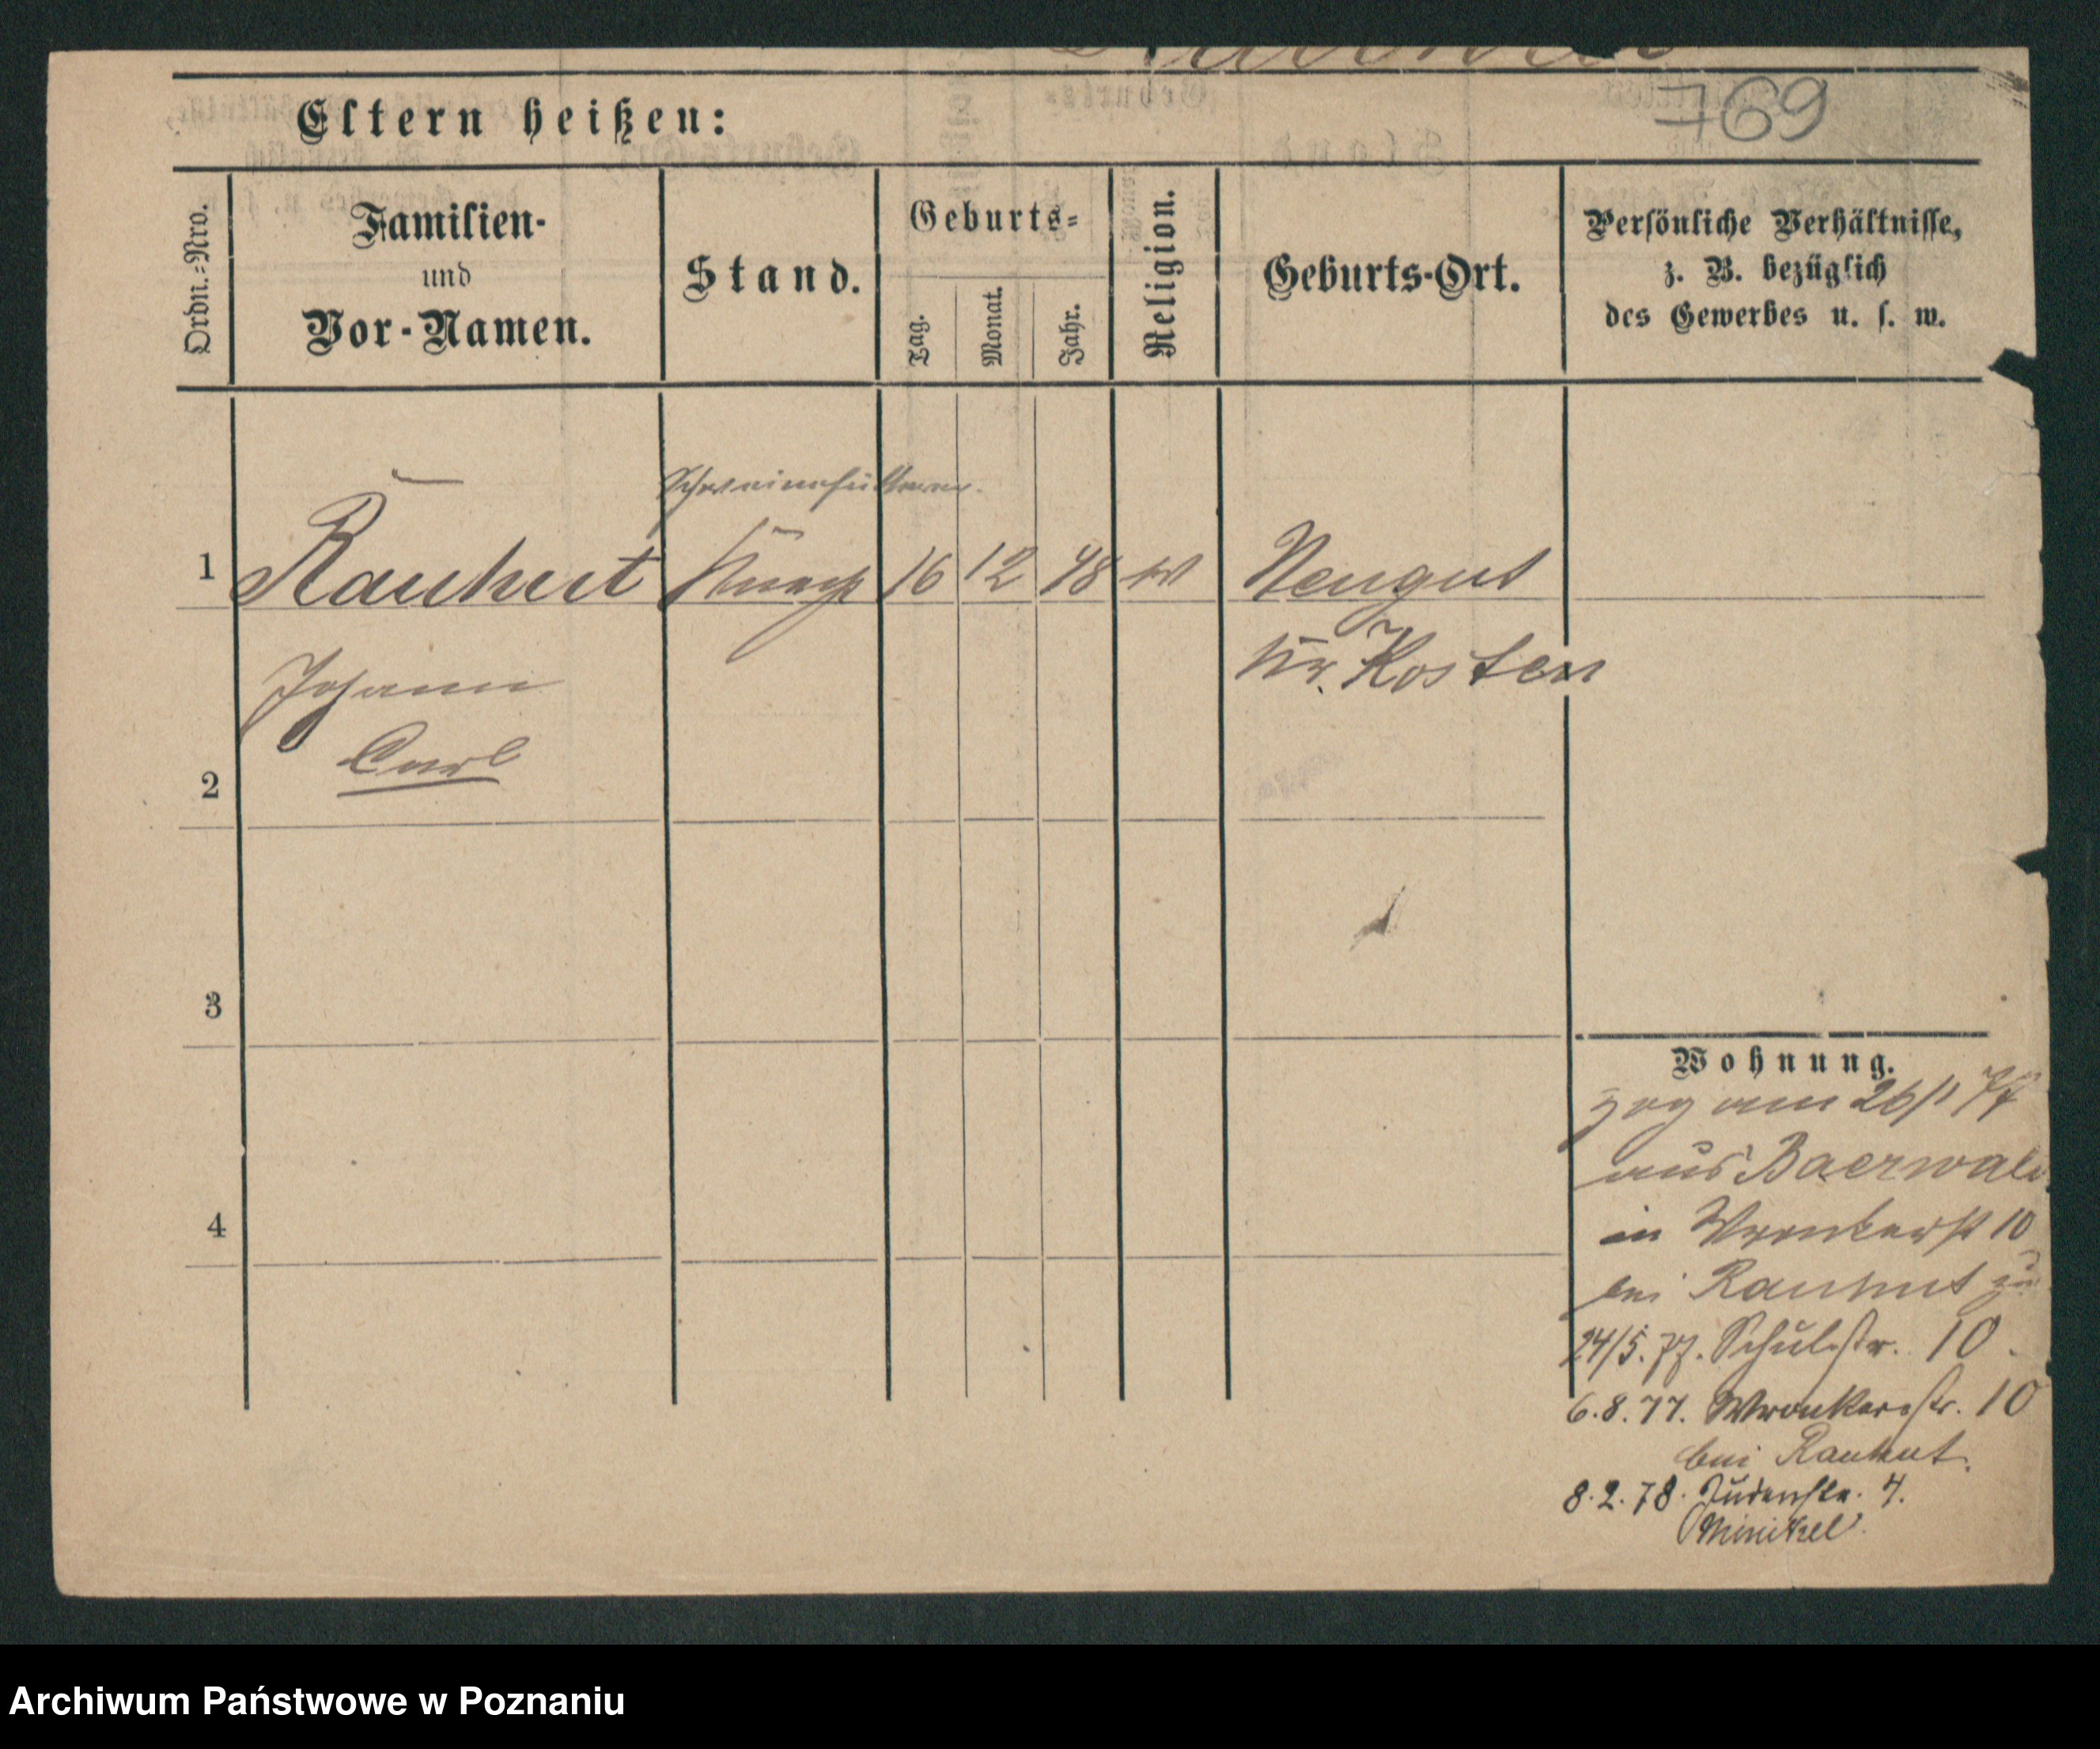 769
Eltern heißen:
Ordn.-Nro.
Familien-
und
Vor-Namen.
Stand.
Geburts-
Tag.
Monat.
Jahr.
Religion.
Geburts-Ort.
Persönliche Verhältnisse,
z. B. bezüglich
des Gewerbes u. s. w.
1 Rauhut Knecht 16 12 48 Neugut
Kr. Kosten
Johann
Carl
2
3
4
Wohnung.
zog am 26/1 77
aus Baerwald
in Wronkerst 10
bei Rauhut zu
24/5. 77. Schulstr. 10.
6.8.77. Wronkerstr. 10
bei Rauhut.
8.2.78. Judenstr. 4.
Archiwum Państwowe w Poznaniu